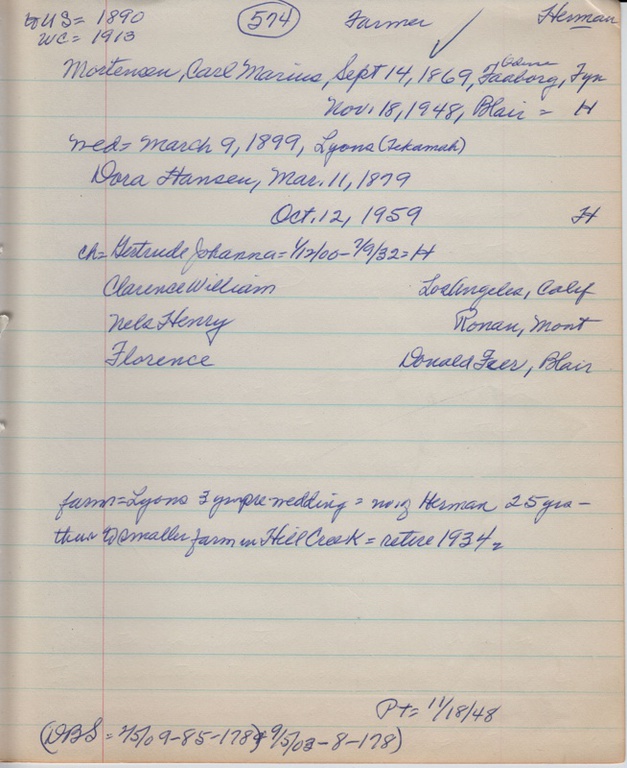 to US = 1890 574 Farmer Herman
WC = 1913
Odense
Mortensen, Carl Marius, Sept 14, 1869, Faaborg, Fyn
Nov. 18, 1948, Blair = H
wed = March 9, 1899, Lyons (Tekamah)
Dora Hansen, Mar. 11, 1879
Oct. 12, 1959 H
ch = Gertrude Johanna = 1/12/00 - 7/9/32 = H
Clarence William Los Angeles, Calif
Nels Henry Ronan, Mont
Florence Donald Feer, Blair
farm = Lyons 3 yrs pre wedding = no. of Herman 25 yrs -
then to smaller farm in Hill Creek = retire 1934 =
PT = 11/18/48
(DBS = 7/5/09-85-178 & 9/5/03-8-178)